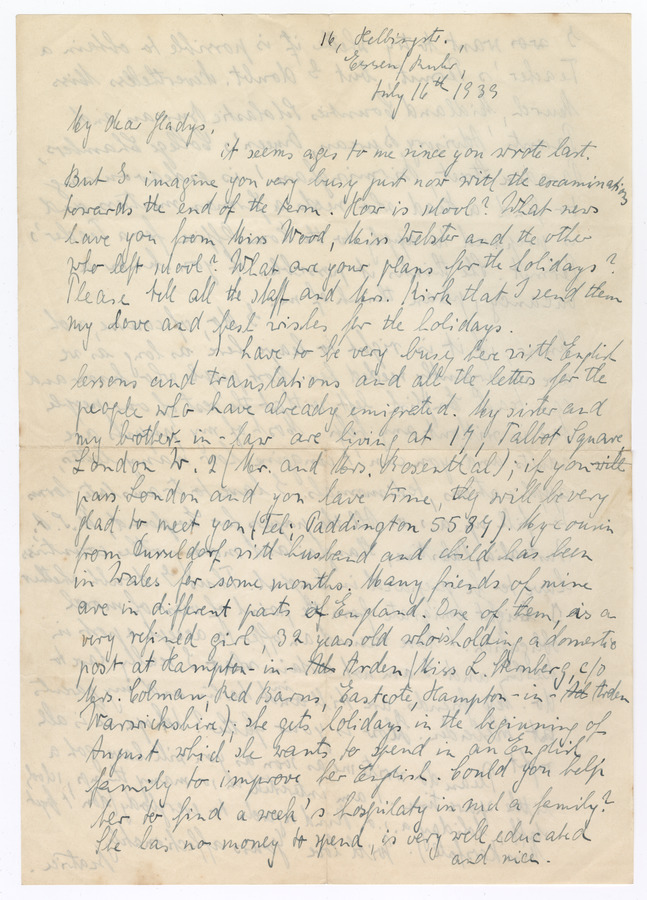 16, Hellingstr.,
Essen/Ruhr,
July 16th 1939
My dear Gladys,
it seems ages to me since you wrote last.
But I imagine you very busy just now with the examinations
towards the end of the term. How is school? What news
have you from Miss Wood, Miss Webster and the other
who left school? What are your plans for the holidays?
Please tell all the staff and Mrs. Kirk that I send them
my love and best wishes for the holidays.
I have to be very busy here with English
lessons and translations and all the letters for the
people who have already emigrated. My sister and
my brother-in-law are living at 17, Talbot Square
London W. 2 (Mr. and Mrs. Rosenthal); if you will
pass London and you have time, they will be very
glad to meet you (Tel; Paddington 5584). My cousin
from Dusseldorf with husband and child has been
in Wales for some months. Many friends of mine
are in different parts of England. One of them, as a
very refined girl, 32 years old who is holding a domestic
post at Hampton-in-Arden (Miss L. Sternberg, c/o
Mrs. Colman, Red Barns, Eastcote, Hampton-in-Arden
Warwickshire); she gets holidays in the beginning of
August which she wants to spend in an English
family to improve her English. Could you help
her to find a week's hospilaty in such a family?
She has no money to spend, is very well educated
and nice.